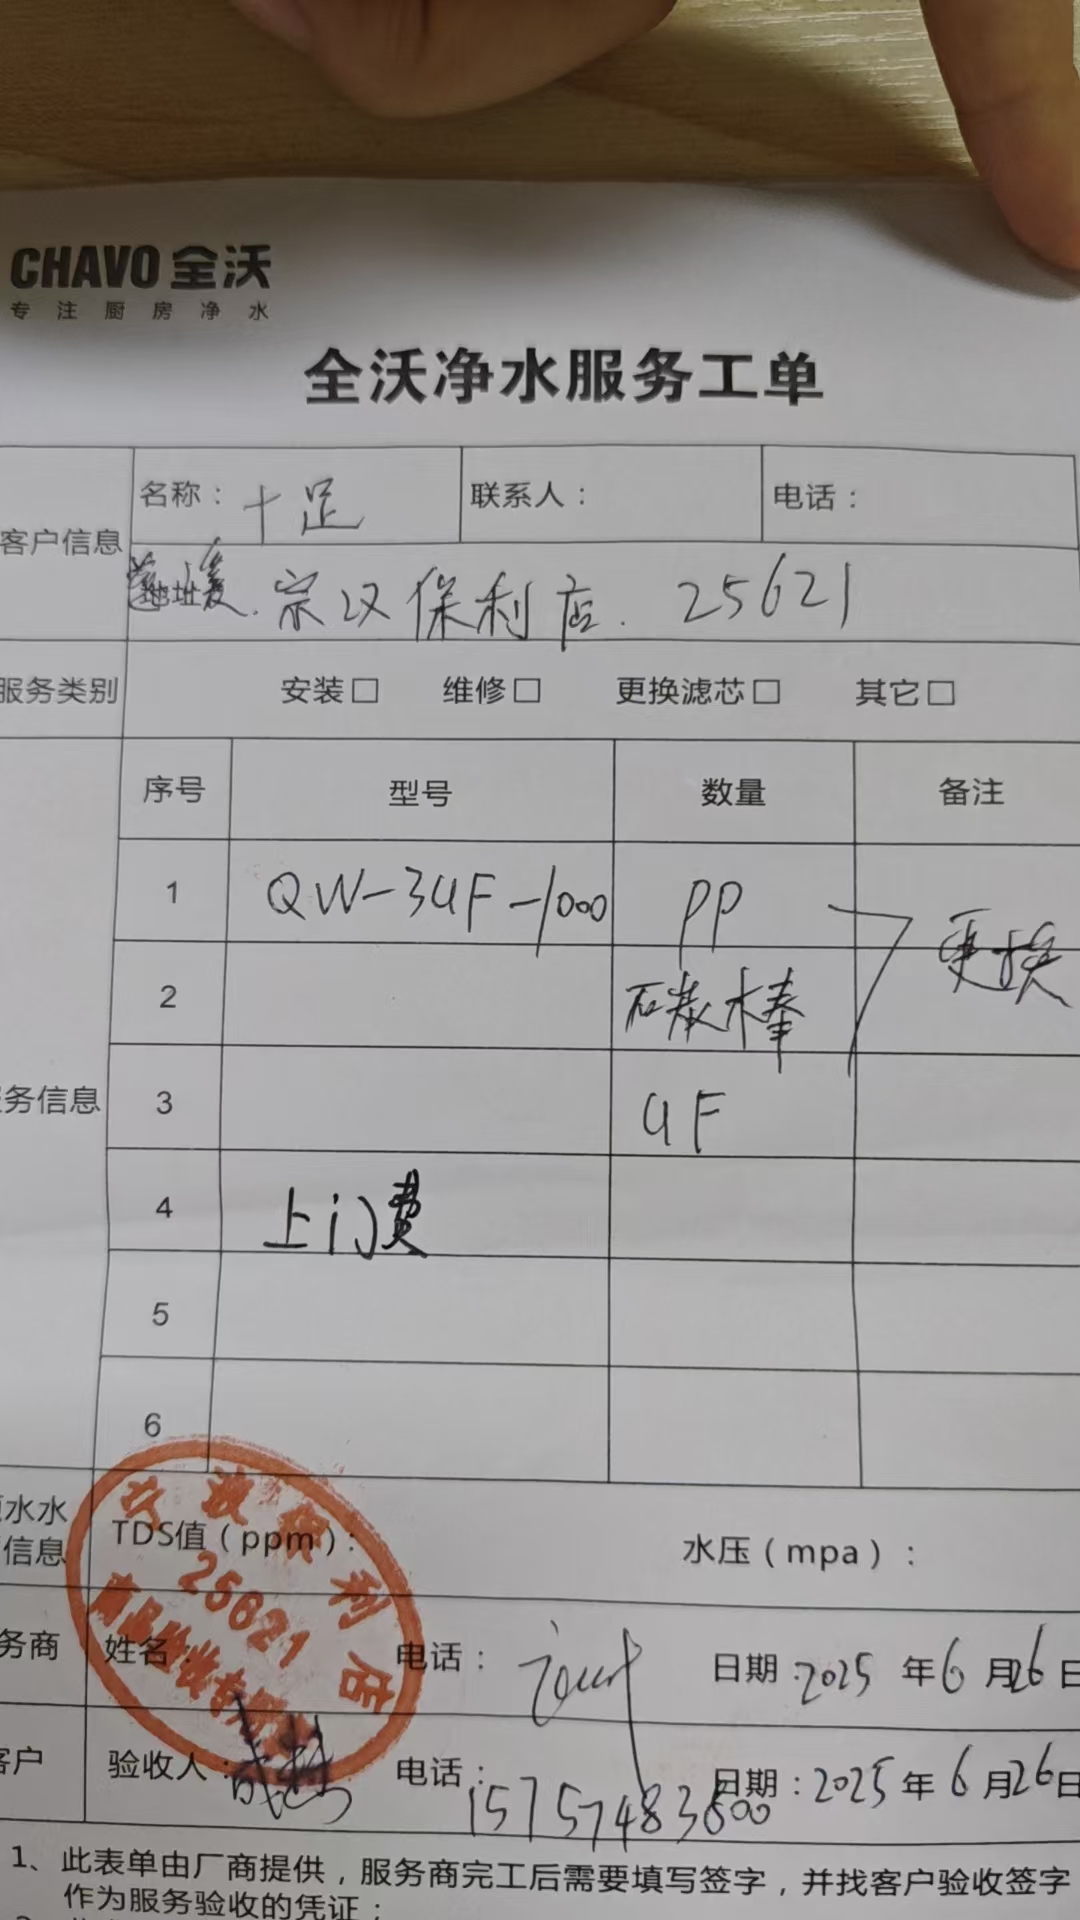 CHAVO 全沃
专注厨房净水
全沃净水服务工单
客户信息 名称：十足 联系人： 电话：
地址 宗汉保利店. 25621
服务类别 安装□ 维修□ 更换滤芯□ 其它□
序号 型号 数量 备注
1 QW-3UF-1000 PP 更换
2 碳棒
务信息 3 UF
4 上门费
5
6
水水
信息 TDS值（ppm）： 水压（mpa）：
宁波保利店
25621
务商 姓名： 电话： 日期：2025年6月26日
客户 验收人： 电话：15757483600 日期：2025年6月26日
1、此表单由厂商提供，服务商完工后需要填写签字，并找客户验收签字
作为服务验收的凭证；